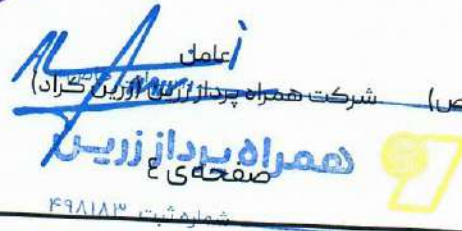 عامل
ص) شرکت همراه پرداز زرین (زرین گراد)
همراه پرداز زرین
صفحه‌ی ٤
شماره ثبت ۴۹۸۱۸۳